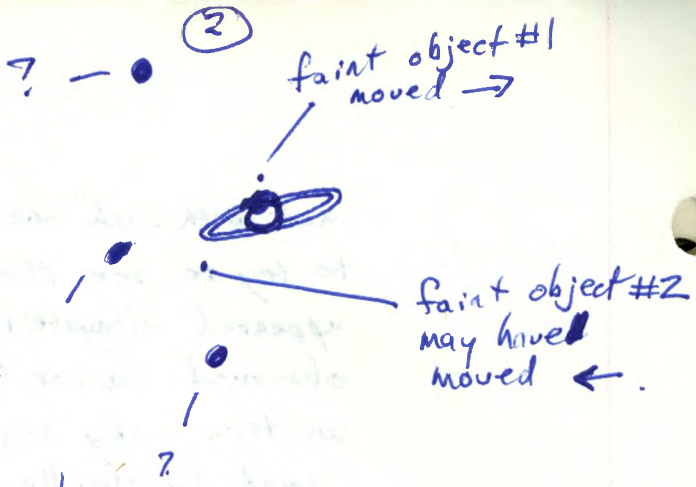 2
?
faint object #1
moved →
faint object #2
may have
moved ← .
?